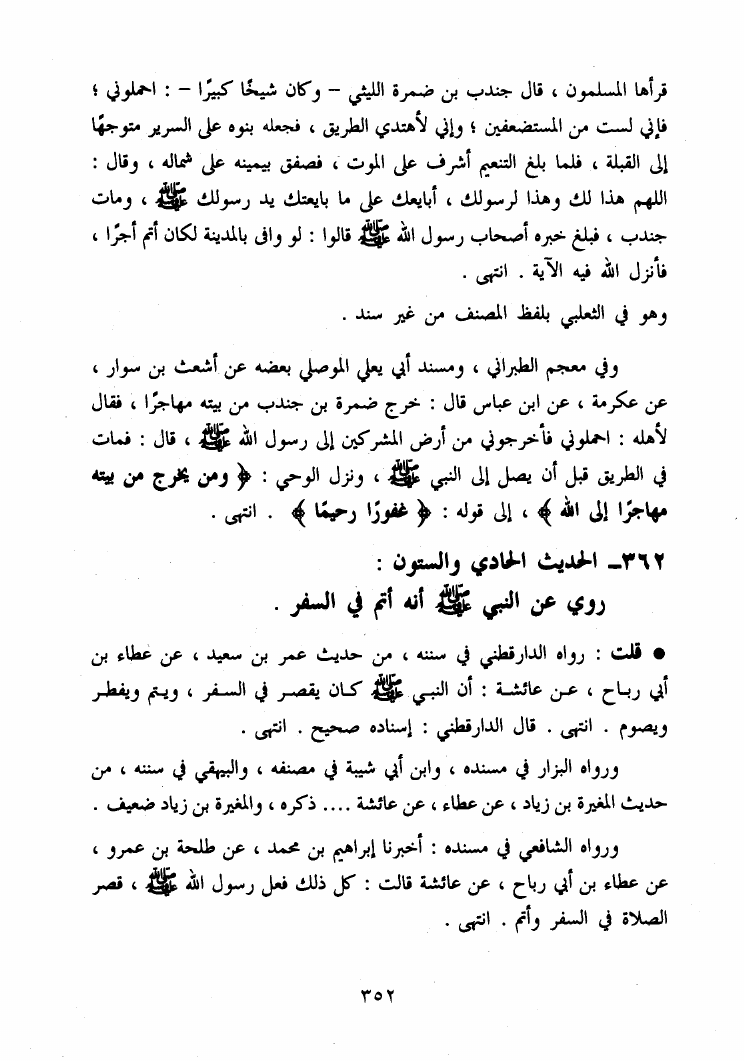 قرأها المسلمون ، قال جندب بن ضمرة الليثي – وكان شيخًا كبيرًا – : احملوني ؛
فإني لست من المستضعفين ؛ وإني لأهتدي الطريق ، فجعله بنوه على السرير متوجهًا
إلى القبلة ، فلما بلغ التنعيم أشرف على الموت ، فصفق بيمينه على شماله ، وقال :
اللهم هذا لك وهذا لرسولك ، أبايعك على ما بايعتك يد رسولك ﷺ ، ومات
جندب ، فبلغ خبره أصحاب رسول الله ﷺ قالوا : لو وافى بالمدينة لكان أتم أجرًا ،
فأنزل الله فيه الآية . انتهى .
وهو في الثعلبي بلفظ المصنف من غير سند .
وفي معجم الطبراني ، ومسند أبي يعلي الموصلي بعضه عن أشعث بن سوار ،
عن عكرمة ، عن ابن عباس قال : خرج ضمرة بن جندب من بيته مهاجرًا ، فقال
لأهله : احملوني فأخرجوني من أرض المشركين إلى رسول الله ﷺ ، قال : فمات
في الطريق قبل أن يصل إلى النبي ﷺ ، ونزل الوحي : ﴿ ومن يخرج من بيته
مهاجرًا إلى الله ﴾ ، إلى قوله : ﴿ غفورًا رحيمًا ﴾ . انتهى .
٣٦٢ـ الحديث الحادي والستون :
روي عن النبي ﷺ أنه أتم في السفر .
● قلت : رواه الدارقطني في سننه ، من حديث عمر بن سعيد ، عن عطاء بن
أبي رباح ، عن عائشة : أن النبي ﷺ كان يقصر في السفر ، ويتم ويفطر
ويصوم . انتهى . قال الدارقطني : إسناده صحيح . انتهى .
ورواه البزار في مسنده ، وابن أبي شيبة في مصنفه ، والبيهقي في سننه ، من
حديث المغيرة بن زياد ، عن عطاء ، عن عائشة .... ذكره ، والمغيرة بن زياد ضعيف .
ورواه الشافعي في مسنده : أخبرنا إبراهيم بن محمد ، عن طلحة بن عمرو ،
عن عطاء بن أبي رباح ، عن عائشة قالت : كل ذلك فعل رسول الله ﷺ ، قصر
الصلاة في السفر وأتم . انتهى .
٣٥٢